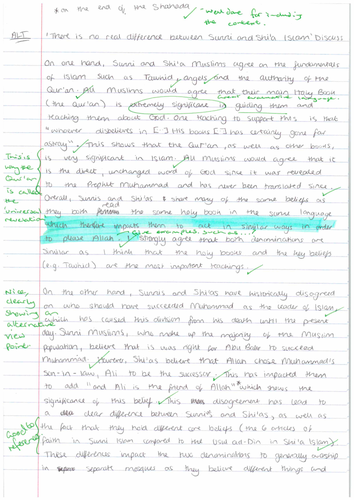 * on the end of the Shahada. ✓ - well done for including the context.
ALT 'There is no real difference between Sunni and Shi'a Islam' Discuss
On one hand, Sunni and Shi'a Muslims agree on the fundamentals
of Islam such as Tawhid, angels and the authority of the
Qur'an. All Muslims would agree that their main holy book
(the Qur'an) is extremely significant in guiding them and
teaching them about God. One teaching to support this is that
"whoever disbelieves in [...] His books [...] has certainly gone far
astray". This shows that the Qur'an, as well as other books,
This is why the Qur'an is called the universal revelation
is very significant in Islam. All Muslims would agree that it
is the direct, unchanged word of God since it was revealed
to the Prophet Muhammad and has never been translated since.
Overall, Sunnis and Shi'as share many of the same beliefs as
they both read the same holy book in the same language
which therefore impacts them to act in similar ways in order
to please Allah. I strongly agree that both denominations are
similar as I think that the holy books and the key beliefs
(e.g. Tawhid) are the most important teachings.
Nice, clearly showing an alternative view point
On the other hand, Sunnis and Shi'as have historically disagreed
on who should have succeeded Muhammad as the leader of Islam
which has caused this division from his death until the present
day. Sunni Muslims, who make up the majority of the Muslim
population, believe that it was right for Abu Bakr to succeed
Muhammad. However, Shi'as believe that Allah chose Muhammad's
son-in-law, Ali to be the successor. This has impacted them
to add "and Ali is the friend of Allah"* which shows the
significance of this belief. This disagreement has lead to
a clear difference between Sunnis and Shi'as, as well as
Good to reference
the fact that they hold different core beliefs (the 6 articles of
faith in Sunni Islam compared to the Usul ad-Din in Shi'a Islam).
These differences impact the two denominations to generally worship
in separate mosques as they believe different things and